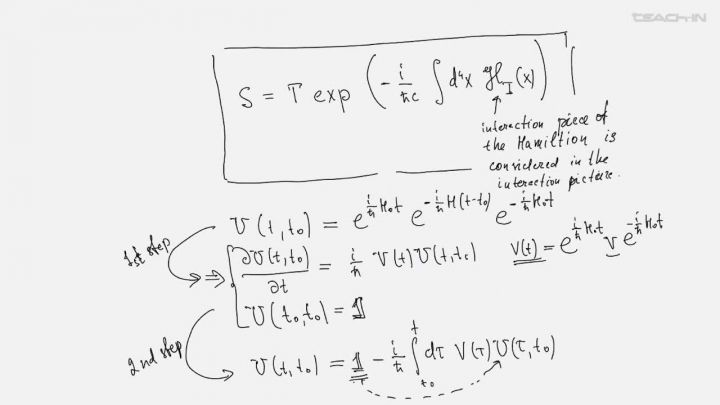 TEACH-IN
S = T exp (-i/ħc ∫ d⁴x ℋ_I(x))
interaction piece of
the Hamiltion is
considered in the
interaction picture.
U(t,t₀) = e^{i/ħ H₀t} e^{-i/ħ H(t-t₀)} e^{-i/ħ H₀t}
1st step
⇒ { ∂U(t,t₀)/∂t = i/ħ V(t) U(t,t₀) V(t) = e^{i/ħ H₀t} V e^{-i/ħ H₀t}
U(t₀,t₀) = 𝟙
2nd step
U(t,t₀) = 𝟙 - i/ħ ∫_{t₀}^{t} dτ V(τ) U(τ,t₀)